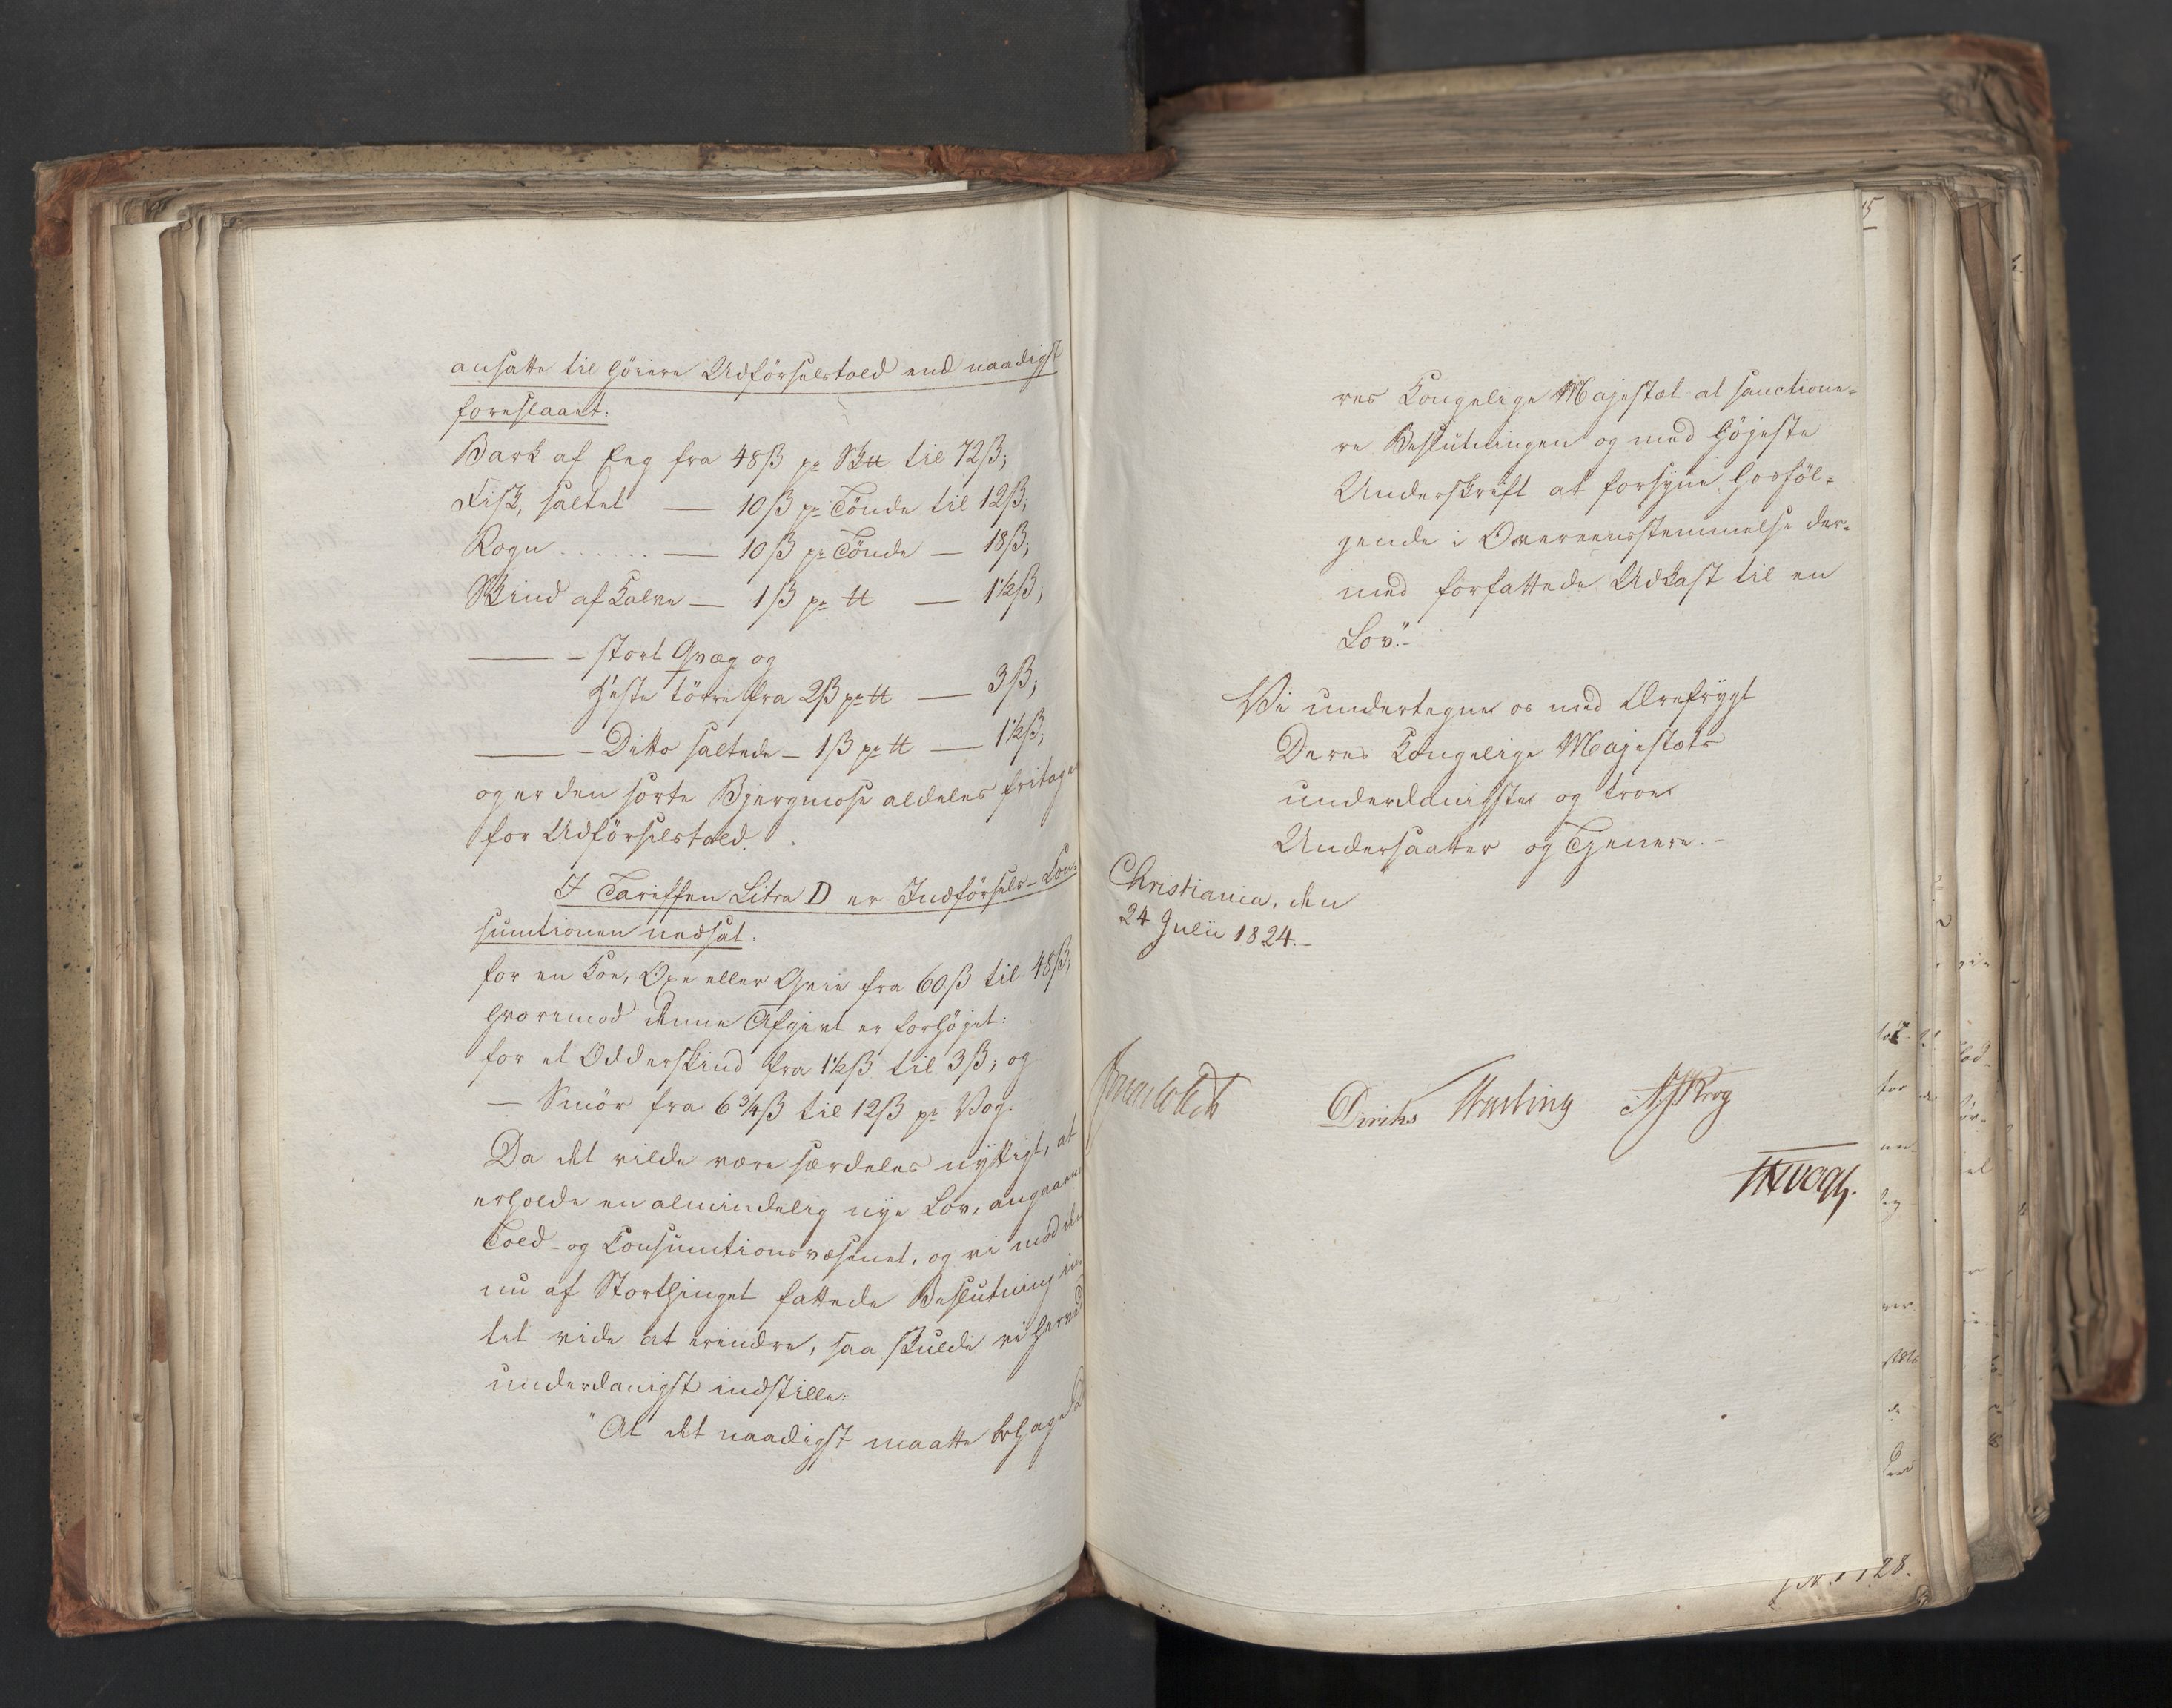 ansatte til höiere Udförselstold end naadigst
foreslaaet:
Bark af Eeg fra 48 ß pr Sk℔ til 72 ß;
Fisk, saltet — 10 ß pr Tönde til 12 ß;
Rogn . . . . . . — 10 ß pr Tönde — 18 ß;
Skind af Kalve — 1 ß pr ℔ — 1½ ß;
—— – stort Qvæg og
Heste törre fra 2 ß pr ℔ — 3 ß;
—— – Ditto saltede – 1 ß pr ℔ — 1½ ß;
og er den sorte Bjergmose aldeles fritaget
for Udförselstold.
I Tariffen Litra D er Indförsels-Con-
sumtionen nedsat:
for en Koe, Oxe eller Qvie fra 60 ß til 48 ß;
hvorimod denne Afgivt er forhöjet:
for et Odderskind fra 1½ ß til 3 ß; og
— Smör fra 6¾ ß til 12 ß pr Vog.
Da det vilde være særdeles nyttigt, at
erholde en almindelig nye Lov, angaaende
Told- og Consumtionsvæsenet, og vi mod den
nu af Storthinget fattede Beslutning in-
tet vide at erindre, saa skulde vi herved
underdanigst indstille:
"At det naadigst maatte behage De
res Kongelige Majestæt at sanctione-
re Beslutningen og med höjeste
Underskrift at forsyne hosföl-
gende i Overeensstemmelse der-
med forfattede Udkast til en
Lov."-
Vi undertegne os med Ærefrygt
Deres Kongelige Majestæts
underdanigste og troe
Undersaatter og Tjenere.-
Christiania, den
24 Julii 1824.-
Diriks
Motzfeldt
Krog
JHVogt.